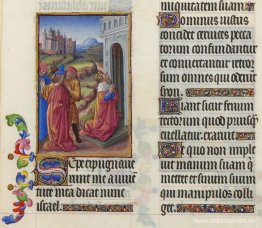 Sepe expugnaue
runt me a iuuen
tute mea dicat nunc
israel.
niquitatem suam.
Dominus iustus
concidet ceruices pecca
torum confundantur
et conuertantur retror
sum omnes qui oderunt
syon.
Fiant sicut fenum
tectorum quod priusq̄
euellatur exaruit
De quo non impleuit
manum suam qui
metet et sinum suum
qui manipulos colli
get.